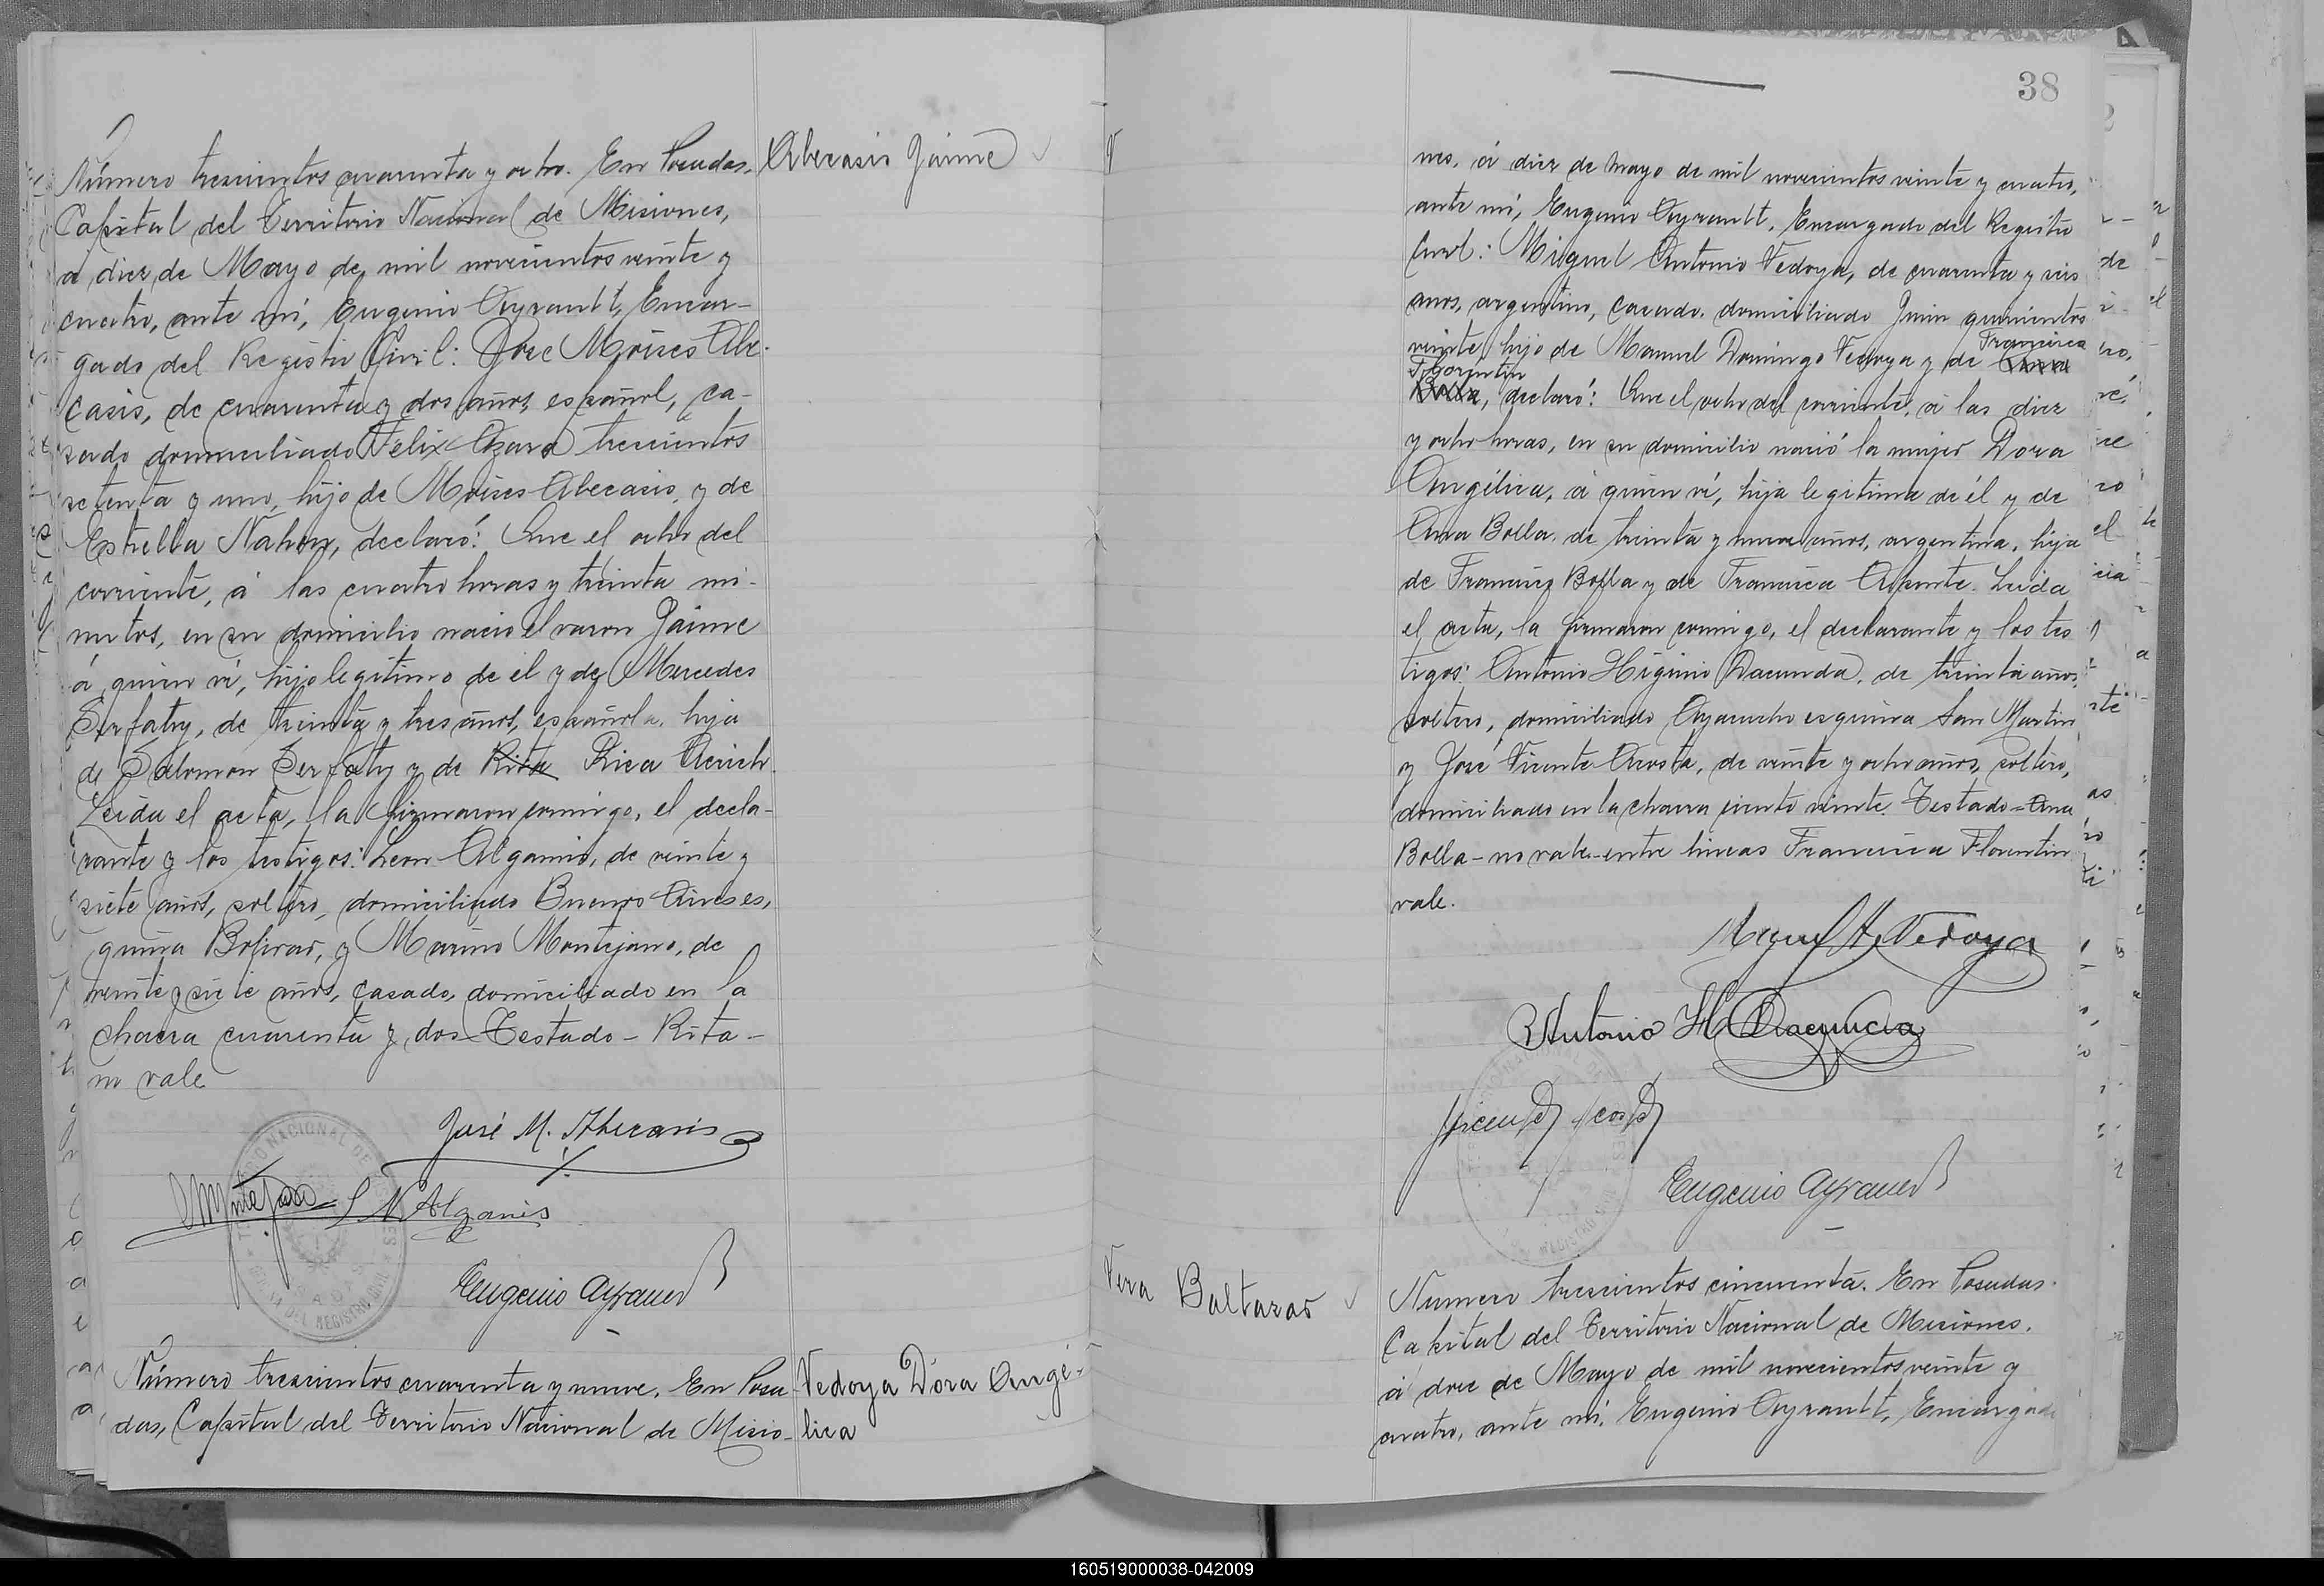 Número trescientos cuarenta y ocho. En Posadas,
Capital del Territorio Nacional de Misiones,
a diez de Mayo de mil novecientos veinte y
cuatro, ante mí, Eugenio Ayrault, Encar-
gado del Registro Civil: José Moises Abe-
casis, de cuarenta y dos años, español, ca-
sado domiciliado Felix Azara trescientos
setenta y uno, hijo de Moises Abecasis, y de
Estrella Nahon, declaró: Que el ocho del
corriente, á las cuatro horas y treinta mi-
nutos, en su domicilio nació el varon Jaime
á quien ví, hijo legítimo de él y de Mercedes
Serfaty, de treinta y tres años, española, hija
de Salomon Serfaty y de Rita Rica
Leida el acta, la firmaron comigo, el decla-
rante y los testigos: Leon Alganis, de veinte y
siete años, soltero, domiciliado Buenos Aires es,
quina Bolivar, y Marino Montejano, de
veinte y siete años, casado, domiciliado en la
chacra cuarenta y dos-Testado-Rita-
no vale
Abecasis Jaime
José M. Abecasis
S N Alganis
Eugenio Ayrault
TERRITORIO NACIONAL DE MISIONES
POSADAS
OFICINA DEL REGISTRO CIVIL
Número trescientos cuarenta y nueve. En Posa-
das, Capital del Territorio Nacional de Misio-
Vedoya Dora Angé-
lica
38
nes, á diez de Mayo de mil novecientos veinte y cuatro,
ante mí, Eugenio Ayrault, Encargado del Registro
Civil: Miguel Antonio Vedoya, de cuarenta y seis
anos, argentino, casado, domiciliado Junin quinientos
veinte, hijo de Manuel Domingo Vedoya y de Ana Francisca
Bolla Florentin, declaró: Que el ocho del corriente, á las diez
y ocho horas, en su domicilio nació la mujer Dora
Angélica, á quien ví, hija legitima de él y de
Ana Bolla, de treinta y nueve años, argentina, hija
de Francisco Bolla y de Francisca Aponte. Leida
el acta, la firmaron comigo, el declarante y los tes
tigos: Antonio Higinio Dacunda, de treinta años,
soltero, domiciliado Ayacucho esquina San Martin
y José Vicente Acosta, de veinte y ocho años, soltero,
domiciliado en la chacra ciento veinte. Testado-Ana
Bolla-no vale-entre líneas Francisca Florentin
vale.
Miguel A. Vedoya
Antonio H Dacunda
Vicente Acosta
Eugenio Ayrault
Vera Baltazar
Numero trescientos cincuenta. En Posadas.
Capital del Territorio Nacional de Misiones.
á doce de Mayo de mil novecientos veinte y
cuatro, ante mí, Eugenio Ayrault, Encargado
160519000038-042009